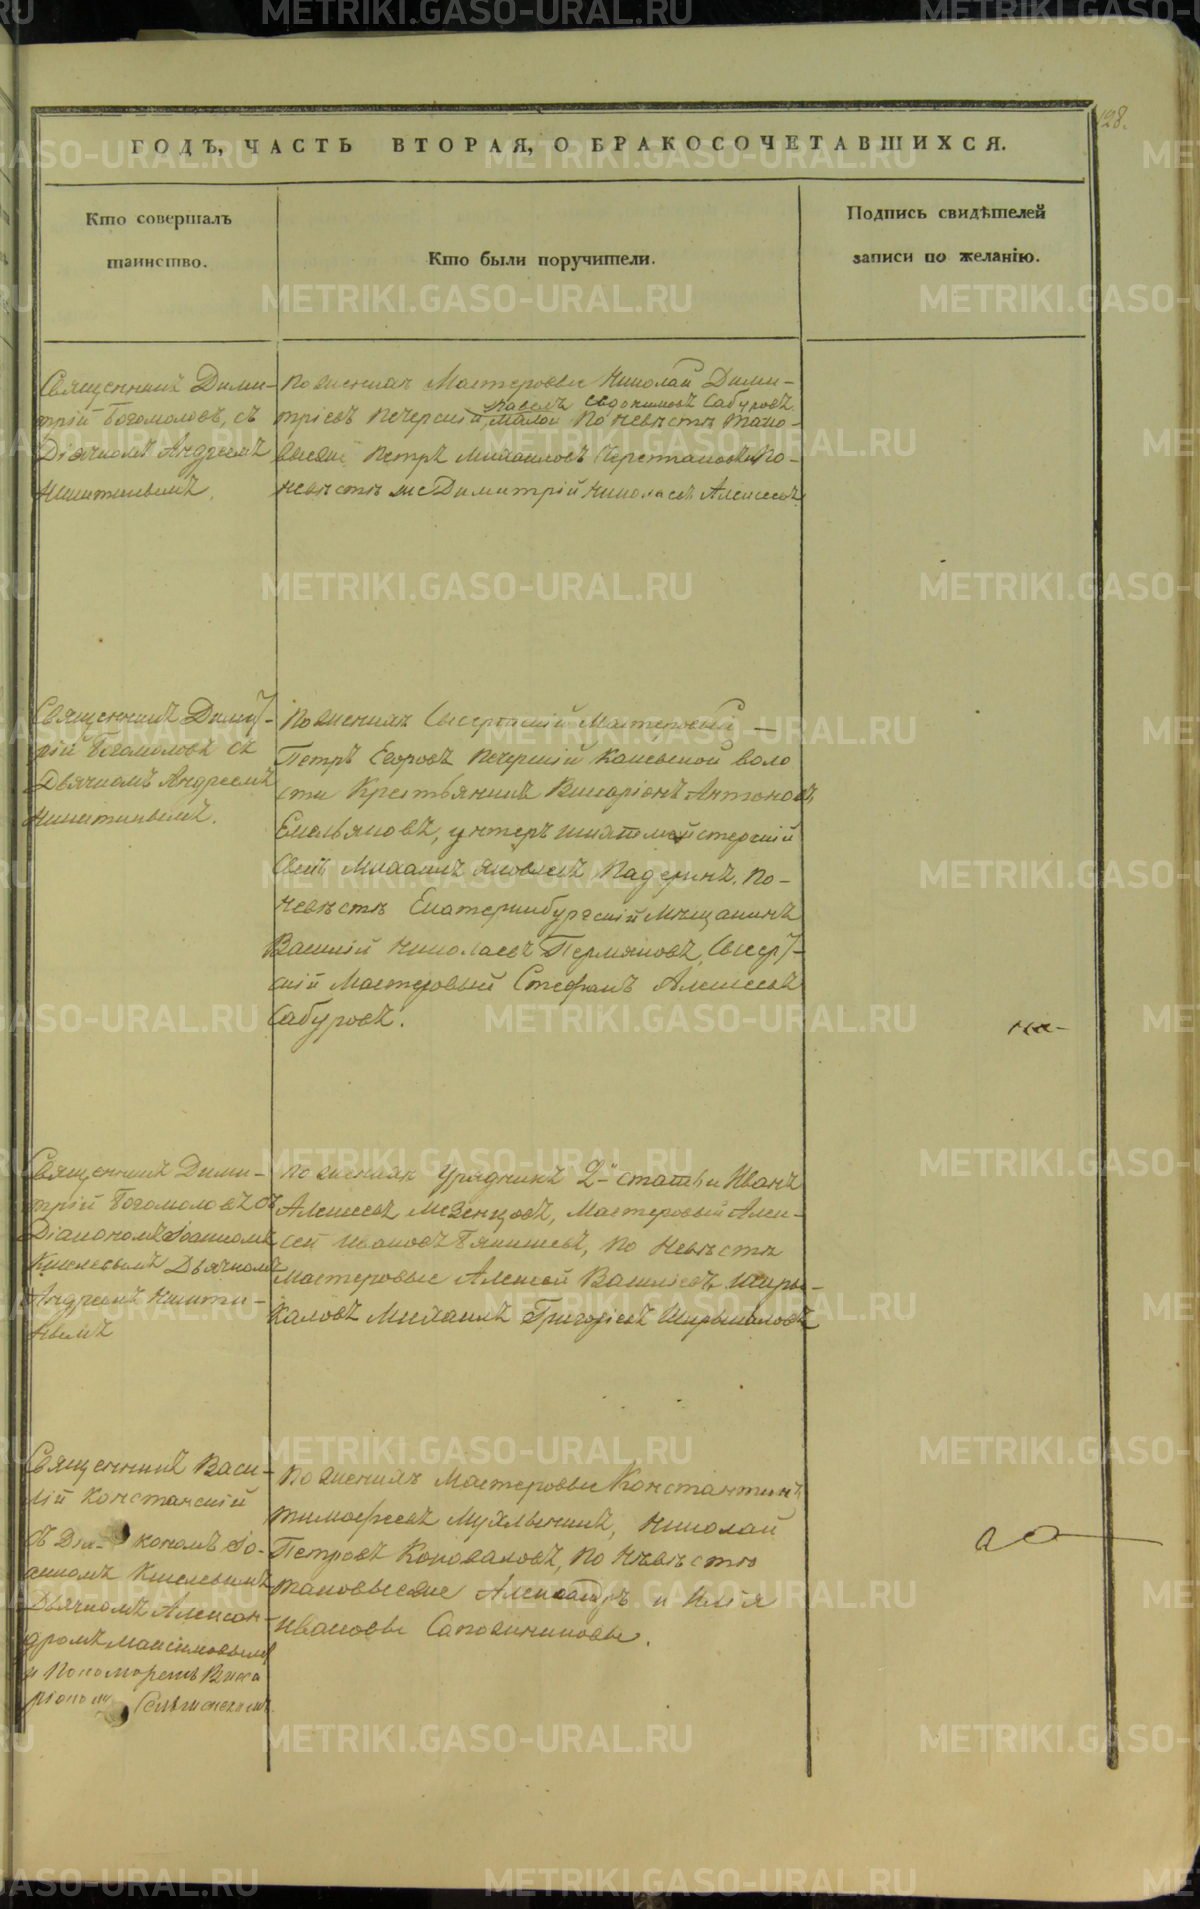 128.
ГОДЪ, ЧАСТЬ ВТОРАЯ, О БРАКОСОЧЕТАВШИХСЯ.
Кто совершалъ
таинство.
Кто были поручители.
Подпись свидѣтелей
записи по желанію.
Священникъ Дими-
трій Богомоловъ, съ
Діячкомъ Андреемъ
Никитинымъ.
По женихѣ Мастеровые Николай Дими-
Павелъ Евдокимовъ Сабуровъ
тріевъ Печерскій, малой По невѣстѣ тако-
выеже Петръ Михаиловъ По-
невѣстѣ же Димитрій Николаевъ Алексѣевъ
Священникъ Димит-
рій Богомоловъ съ
Дьячкомъ Андреемъ
Никитинымъ.
По женихѣ Сысертскій Мастеровый —
Петръ Егоровъ Печерскій воло
сти Крестьянинъ Викаріонъ Антоновъ
Емельяновъ, унтеръ шихтмейстерскій
Сынъ Михаилъ Яковлевъ Падеринъ. По-
невѣстѣ Екатеринбургскій Мѣщанинъ
Василій Николаевъ Пермяковъ, Сысерт-
скій Мастеровый Стефанъ Алексѣевъ
Сабуровъ.
Священникъ Дими-
трій Богомоловъ съ
Діакономъ Іоанномъ
Киселевымъ Дьячкомъ
Андреемъ Никити-
нымъ
По женихѣ Урядникъ 2й статьи Иванъ
Алексѣевъ Мезенцовъ, Мастеровый Алек-
сей Ивановъ По невѣстѣ
Мастеровые Алексей Василіевъ Ширы-
каловъ Михаилъ Григоріевъ Ширыкаловъ
Священникъ Васи-
лій Констанскій
съ Діа- кономъ Іо-
анномъ Киселевымъ
Дьячкомъ Алексан-
дромъ Максимовымъ
и Пономаремъ Вика
ріономъ
По женихѣ Мастеровые Константинъ
Тимофѣевъ Николай
Петровъ Коноваловъ, По невѣстѣ
таковыеже Александръ и Илія
Ивановы